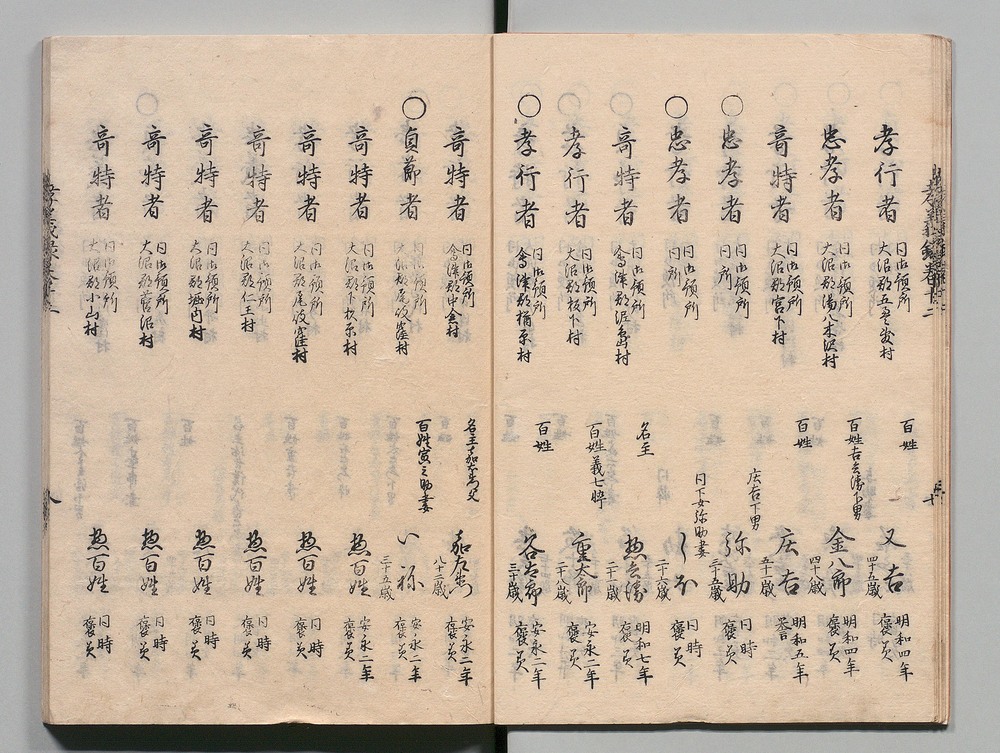 孝行者 同御領所 大沼郡 村 百姓 又吉 四十五歳 明和四年 褒美
忠孝者 同御領所 大沼郡湯八木沢村 百姓吉兵衛下男 金八郎 四十歳 明和四年 褒美
奇特者 同御領所 大沼郡宮下村 百姓 庄右 五十一歳 明和五年 褒
○忠孝者 同御領所 同所 庄右下男 弥助 三十五歳 同時 褒美
○忠孝者 同御領所 同所 同下女弥助妻 二十六歳 同時 褒美
奇特者 同御領所 会津郡 村 名主 惣兵衛 二十二歳 明和七年 褒美
孝行者 同御領所 大沼郡板下村 百姓義七倅 重太郎 二十八歳 安永二年 褒美
○孝行者 同御領所 会津郡桧原村 百姓 谷右衛 三十歳 安永二年 褒美
奇特者 同御領所 会津郡中会村 名主 嘉左衛門 八十二歳 安永二年 褒美
○貞節者 同御領所 会津郡尾岐窪村 百姓寅之助妻 いね 三十五歳 安永二年 褒美
奇特者 同御領所 大沼郡下 村 惣百姓 安永二年 褒美
奇特者 同御領所 大沼郡尾岐窪村 惣百姓 同時 褒美
奇特者 同御領所 大沼郡仁王村 惣百姓 同時 褒美
奇特者 同御領所 大沼郡堀内村 惣百姓 同時 褒美
奇特者 同御領所 大沼郡宮沼村 惣百姓 同時 褒美
奇特者 同御領所 大沼郡小山村 惣百姓 同時 褒美